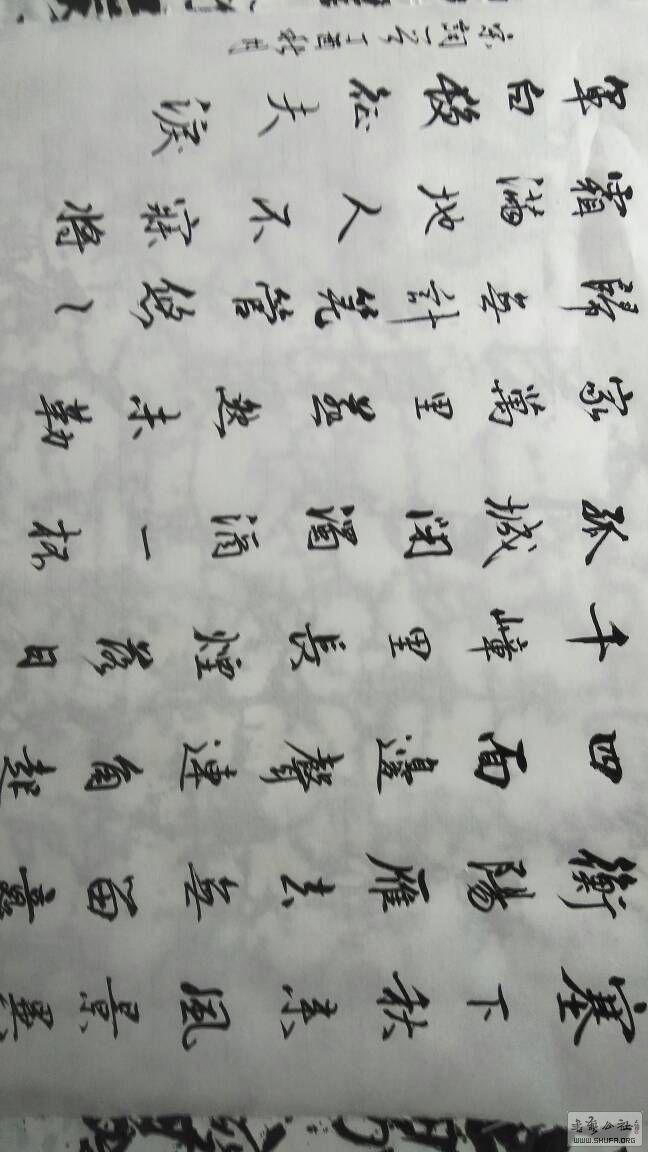 塞下秋来風景異
衡陽雁去無留意
四面邊聲連角起
千嶂里長煙落日
孤城閉濁酒一杯
家萬里燕然未勒
歸無計羌管悠〻
霜滿地人不寐將
軍白髮征夫淚
宋詞一首丁酉秋月
书艺公社
WWW.SHUFA.ORG